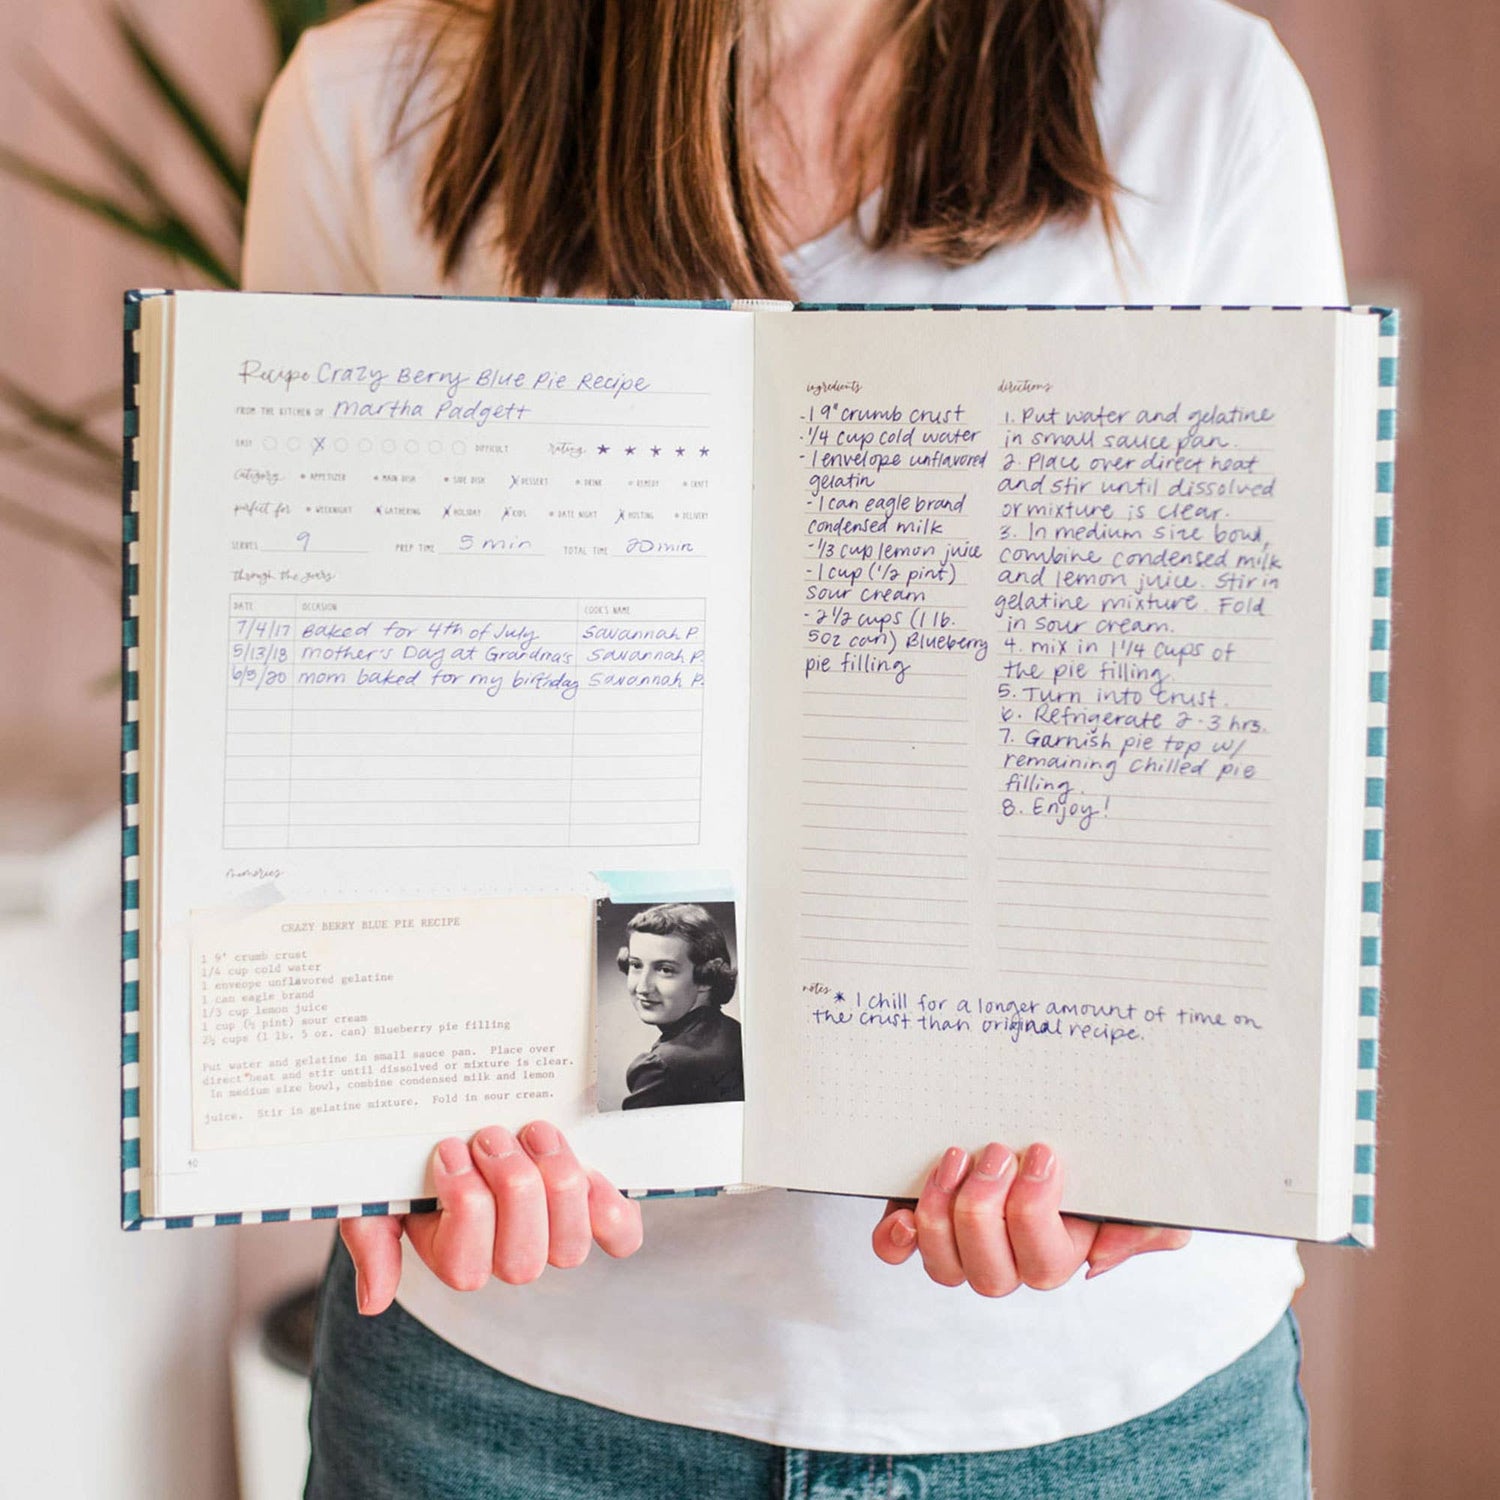 Recipe Crazy Berry Blue Pie Recipe
FROM THE KITCHEN OF Martha Padgett
EASY X DIFFICULT rating ★ ★ ★ ★ ★
Category APPETIZER MAIN DISH SIDE DISH X DESSERT DRINK REMEDY CRAFT
perfect for WEEKNIGHT X GATHERING X HOLIDAY X KIDS DATE NIGHT X HOSTING DELIVERY
SERVES 9 PREP TIME 5 min TOTAL TIME 20 min
through the years
DATE OCCASION COOK'S NAME
7/4/17 Baked for 4th of July Savannah P
5/13/18 Mother's Day at Grandma's Savannah P.
6/9/20 mom baked for my birthday Savannah P.
memories
CRAZY BERRY BLUE PIE RECIPE
1 9" crumb crust
1/4 cup cold water
1 enveope unflavored gelatine
1 can eagle brand
1/3 cup lemon juice
1 cup (½ pint) sour cream
2½ cups (1 lb. 5 oz. can) Blueberry pie filling
Put water and gelatine in small sauce pan. Place over
direct heat and stir until dissolved or mixture is clear.
In medium size bowl, combine condensed milk and lemon
juice. Stir in gelatine mixture. Fold in sour cream.
40
ingredients
- 1 9" crumb crust
- 1/4 cup cold water
- 1 envelope unflavored
gelatin
- 1 can eagle brand
condensed milk
- 1/3 cup lemon juice
- 1 cup (1/2 pint)
sour cream
- 2 1/2 cups (1 lb.
5oz can) Blueberry
pie filling
directions
1. Put water and gelatine
in small sauce pan.
2. Place over direct heat
and stir until dissolved
or mixture is clear.
3. In medium size bowl,
combine condensed milk
and lemon juice. Stir in
gelatine mixture. Fold
in sour cream.
4. mix in 1 1/4 cups of
the pie filling.
5. Turn into crust.
6. Refrigerate 2-3 hrs.
7. Garnish pie top w/
remaining chilled pie
filling.
8. Enjoy!
notes
* I chill for a longer amount of time on
the crust than original recipe.